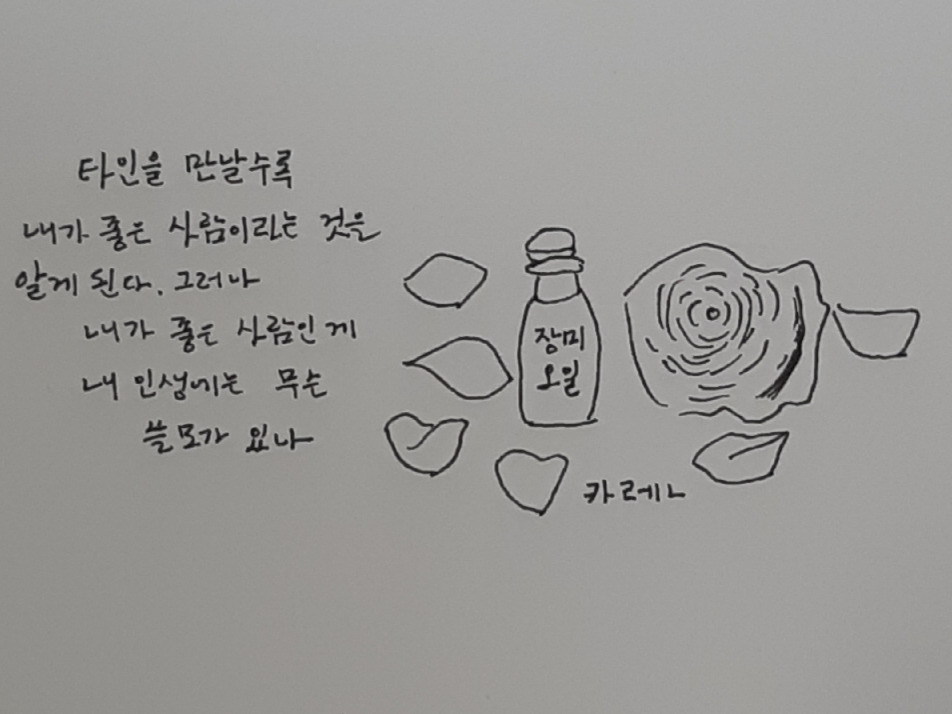 타인을 만날수록
내가 좋은 사람이라는 것을
알게 된다. 그러나
내가 좋은 사람인게
내 인생에는 무슨
쓸모가 있나
장미
오일
카레ㄴ